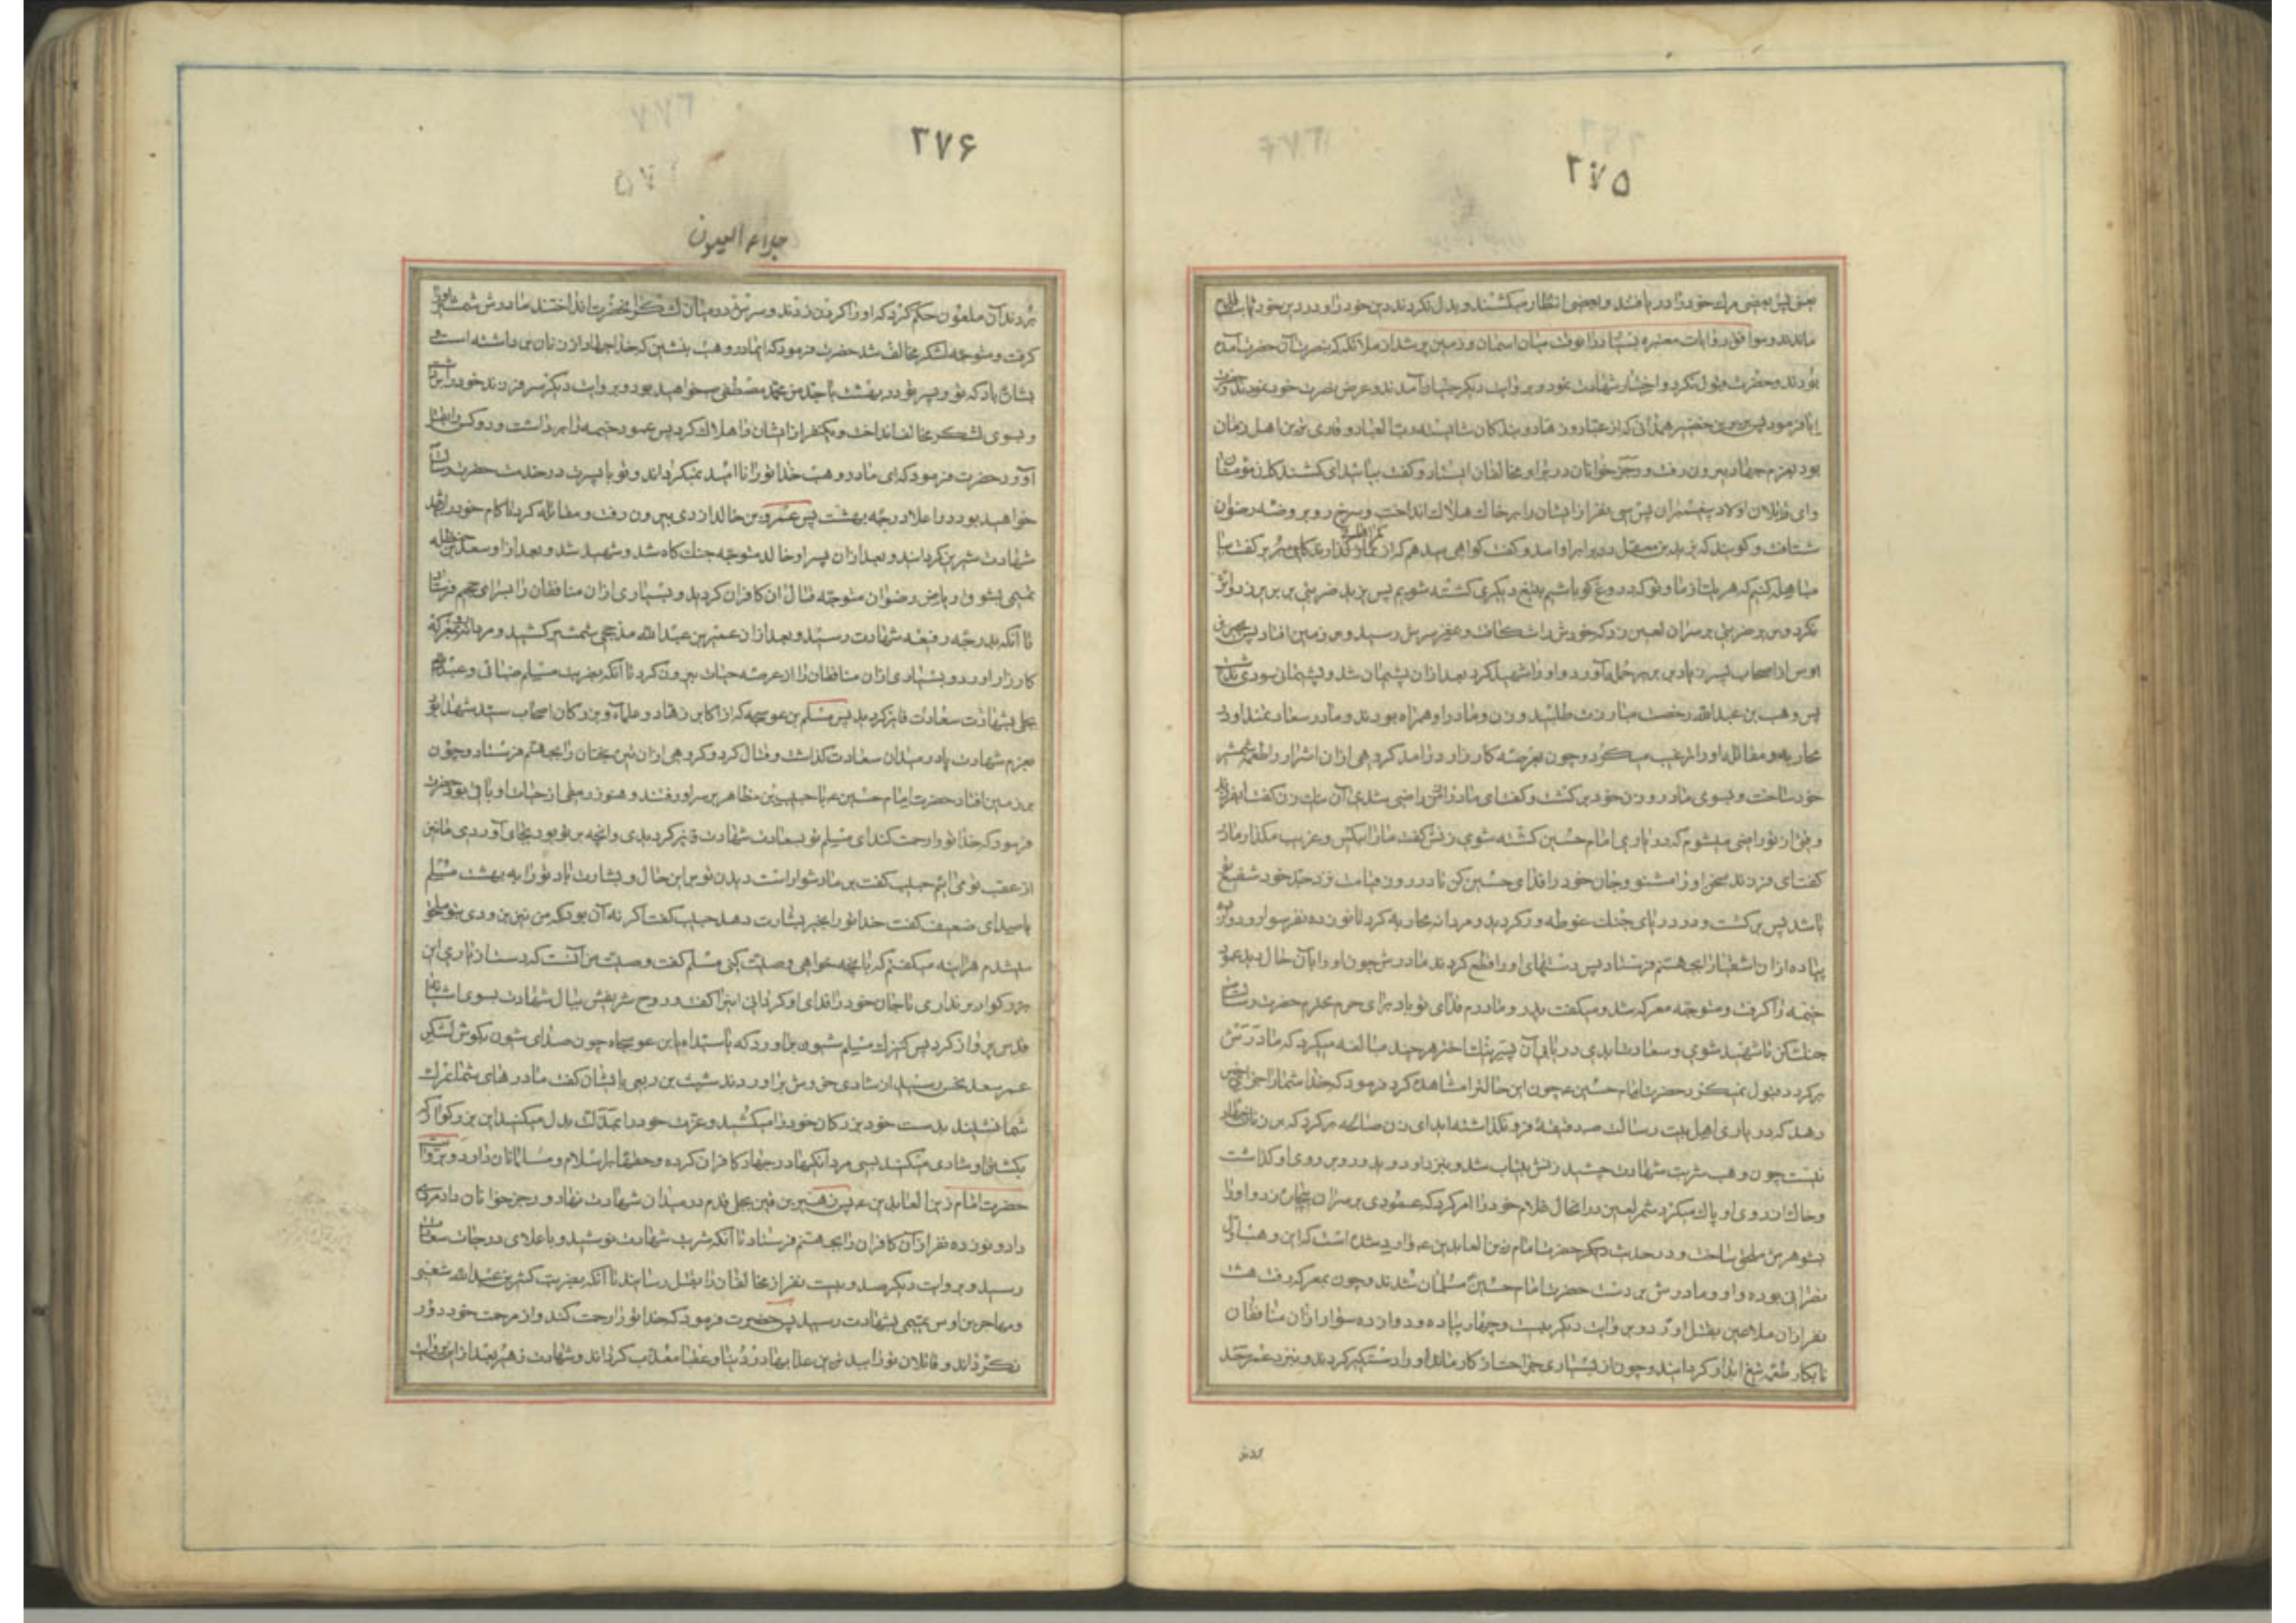 ۲۷۵
یعنی پس بعضی مرک خود را دریافتند و بعضی انتظار میکشند و بدل نکردند دین خود را و در دین خود ثابت قدم
ماندند و موافق روایات معتبره بسیار در آنوقت میان اسمان و زمین پر شد از ملائکه که بنصرت آن حضرت آمده
بودند و حضرت قبول نکرد و اختیار شهادت نمود و بروایت دیگر جنیان آمدند و عرض نصرت خود نمودند و حضرت
ابا فرمود پس بریر بن خضیر همدانی که از عباد و زهاد و بندکان شایسته رب العباد و قاری ترین اهل زمان
بود بعزم جهاد بیرون رفت و رجز خوانان در برابر مخالفان ایستاد و گفت بیائید ای کشندکان مؤمنان
وای قاتلان اولاد پیغمبران پس سی نفر از ایشان را بر خاک هلاک انداخت و بروضه رضوان
شتافت و کویند که یزید بن معقل در برابر او امد و گفت کواهی میدهم که از کمراهانی بریر گفت بیا
مباهله کنیم که هر یک از ما و تو که دروغ کو باشیم بتیغ دیگری کشته شویم پس یزید ضربتی بر بریر زد و اثر
نکرد و بریر ضربتی بر سر آن لعین زد که خودش را شکافت و بمغز سرش رسید و بر زمین افتاد پس بحیر بن
اوس از اصحاب پسر زیاد بر بریر حمله آورد و او را شهید کرد بعد از آن پشیمان شد و پشیمان سودی نداشت
پس وهب بن عبدالله رخصت مبارزت طلبید و زن و مادر او همراه بودند و مادر سعادتمند او را
محاربه و مقاتله او را ترغیب میکرد و چون بعرصه کارزار درامد کروهی از ان اشرار را طعمه شمشیر
خود ساخت و بسوی مادر و زن خود برکشت و گفت ای مادر از من راضی شدی آن نیک زن گفت ای فرزند
وقتی از تو راضی میشوم که در یاری امام حسین کشته شوی زنش گفت مارا بیکس و غریب مکذار مادر
گفت ای فرزند سخن او را مشنو و جان خود را فدای حسین کن تا در روز قیامت نزد جد خود شفیع تو
باشد پس برکشت و در دریای جنک غوطه ور کردید و مردانه محاربه کرد تا نوزده نفر سوار و دوازده
پیاده از ان اشقیا را بجهنم فرستاد پس دستهای او را قطع کردند مادرش چون او را بآن حال دید عمود
خیمه را گرفت و متوجه معرکه شد و میکفت پدر و مادرم فدای تو باد برای حرم محترم حضرت رسالت
جنک کن تا شهید شوی و سعادت ابدی دریابی آن پسر نیک اختر هر چند مبالغه میکرد که مادرش
برکردد قبول نمیکرد حضرت امام حسین ع چون این حالرا مشاهده کرد فرمود که خدا شمارا جزای خیر
دهد که در یاری اهل بیت رسالت هیچ دقیقه فرو نکذاشته اید ای زن صالحه برکرد که بر زنان جهاد
نیست چون وهب شربت شهادت چشید زنش بیتاب شد و بنزد او دوید و رو بر روی او کذاشت
و خاک از روی او پاک میکرد شمر لعین در انحال غلام خود را امر کرد که عمودی بر سر ان بیچاره زد و او را
بشوهرش ملحق ساخت و در حدیث دیگر حضرت امام زین العابدین ع وارد شده است که این وهب اول
نصرانی بوده و او و مادرش بر دست حضرت امام حسین مسلمان شدند و چون بمعرکه رفت هشت
نفر از ان ملاعین بقتل اورد و بروایت دیگر بیست و چهار پیاده و دوازده سوار از ان منافقان
نابکار طعمه تیغ ابدار کردانید و چون از بسیاری جراحت از کار ماند او را دستگیر کردند و بنزد عمر سعد
۲۷۶
جلاء العیون
بردند آن ملعون حکم کرد که او را کردن زدند و سرش در میان لشکر آنحضرت انداختند مادرش شمشیر او را
گرفت و متوجه لشکر مخالف شد حضرت فرمود که ایمادر وهب بنشین که خدا جهاد از زنان برداشته است
بشارت باد که تو و پسر تو در بهشت با جد من محمد مصطفی خواهید بود و بروایت دیگر سر فرزند خود را برداشت
و بسوی لشکر مخالف انداخت و یکنفر از ایشان را هلاک کرد پس عمود خیمه را برداشت و دو کس را بقتل
آورد حضرت فرمود که ای مادر وهب خدا تو را ناامید نمیکرداند و تو با پسرت در خدمت حضرت رسالت
خواهید بود در اعلا درجه بهشت پس عمرو بن خالد ازدی بیرون رفت و مقاتله کرد تا کام خود را بشهد
شهادت شیرین کردانید و بعد از ان پسر او خالد متوجه جنک کاه شد و شهید شد و بعد از او سعد بن حنظله
تمیمی بشوق ریاض رضوان متوجه قتال ان کافران کردید و بسیاری از ان منافقان را بسرای جحیم فرستاد
تا آنکه بدرجه رفیعه شهادت رسید و بعد از ان عمیر بن عبدالله مذحجی شمشیر کشید و مردانه بمعرکه
کارزار اورد و بسیاری از ان منافقان را از عرصه حیات بیرون کرد تا آنکه بضربت مسلم ضبابی و عبدالله
بجلی بشهادت سعادت فایز کردید پس مسلم بن عوسجه که از اکابر زهاد و علماء و بزرکان اصحاب سید شهدا بود
بعزم شهادت پا در میدان سعادت کذاشت و قتال کرد و کروهی از ان تیره بختان را بجهنم فرستاد و چون
بر زمین افتاد حضرت امام حسین ع با حبیب بن مظاهر بر سر او رفتند و هنوز رمقی از حیات او باقی بود حضرت
فرمود که خدا تو را رحمت کند ای مسلم تو بسعادت شهادت فایز کردیدی و انچه بر تو بود بجای آوردی ما نیز
از عقب تو می آییم حبیب گفت بر ما دشوار است دیدن تو بر این حال و بشارت باد تو را به بهشت مسلم
باصدای ضعیف گفت خدا تو را بخیر بشارت دهد حبیب گفت اکر نه آن بود که من نیز بزودی بتو ملحق
میشدم هراینه میکفتم که بانچه خواهی وصیت کنی مسلم گفت وصیت من آنست که دست از یاری این
بزرکوار برنداری تا جان خود را فدای او کردانی اینرا گفت و روح شریفش ببال شهادت بسوی اشیانه
قدس پرواز کرد پس کنیزک مسلم شیون براورد که یا سیداه یا بن عوسجاه چون صدای شیون بکوش لشکر
عمر سعد نحس رسید از شادی خروش براوردند شبث بن ربعی با ایشان گفت مادرهای شما بمرک
شما نشینند بدست خود بزرکان خود را میکشید و عزت خود را بمذلت بدل میکنید این بزرکوار را
بکشتن او شادی میکنید بسی مردانکیها در جهاد کافران کرده و حقها بر اسلام و مسلمانان دارد و بروایت
حضرت امام زین العابدین ع پس زهیر بن قین بجلی قدم در میدان شهادت نهاد و رجز خوانان داد مردی
داد و نوزده نفر از آن کافران را بجهنم فرستاد تا آنکه شربت شهادت نوشید و باعلای درجات سعادت
رسید و بروایت دیگر صد و بیست نفر از مخالفان را بقتل رسانید تا آنکه بضربت کثیر بن عبدالله شعبی
و مهاجر بن اوس تمیمی بشهادت رسید پس حضرت فرمود که خدا تو را رحمت کند و از مرحمت خود دور
نکرداند و قاتلان تو را بعد بدترین عذابها در دنیا و عقبا معذب کرداند و شهادت زهیر بعد از این روایت